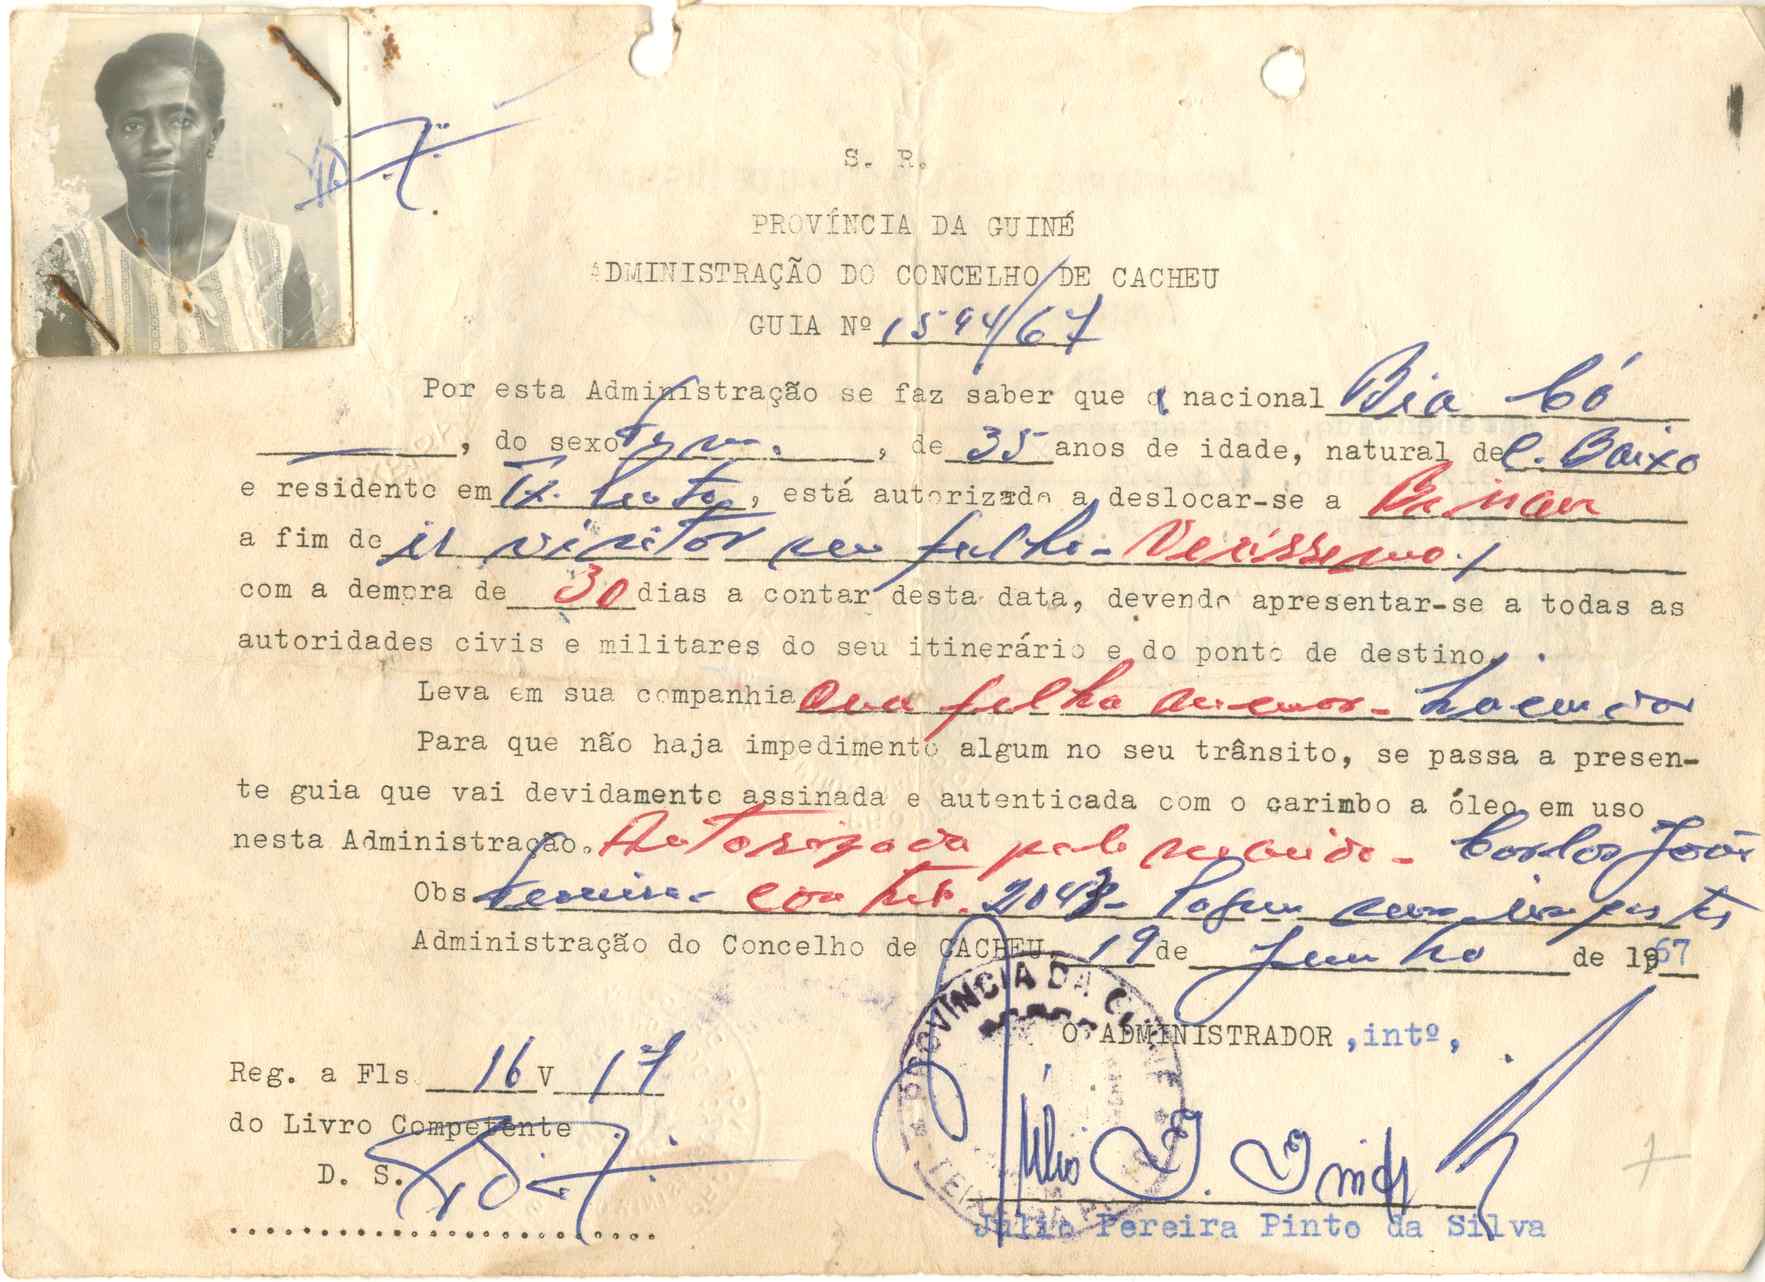 S. R.
PROVÍNCIA DA GUINÉ
ADMINISTRAÇÃO DO CONCELHO DE CACHEU
GUIA Nº 1594/67
Por esta Administração se faz saber que a nacional Bia Có
, do sexo fem. , de 35 anos de idade, natural de C. Baixo
e residente em , está autorizada a deslocar-se a Bissau
a fim de ir visitar seu filho - Veríssimo
com a demora de 30 dias a contar desta data, devendo apresentar-se a todas as
autoridades civis e militares do seu itinerário e do ponto de destino.
Leva em sua companhia sua filha menor -
Para que não haja impedimento algum no seu trânsito, se passa a presen-
te guia que vai devidamente assinada e autenticada com o carimbo a óleo em uso
nesta Administração. Autorizada pelo marido - Carlos João
Obs 2043- Pagou seus impostos
Administração do Concelho de CACHEU, 19 de Junho de 1967
PROVÍNCIA DA GUINÉ
O ADMINISTRADOR, intº,
Reg. a Fls 16 V 17
do Livro Competente
D. S.
Júlio Pereira Pinto da Silva